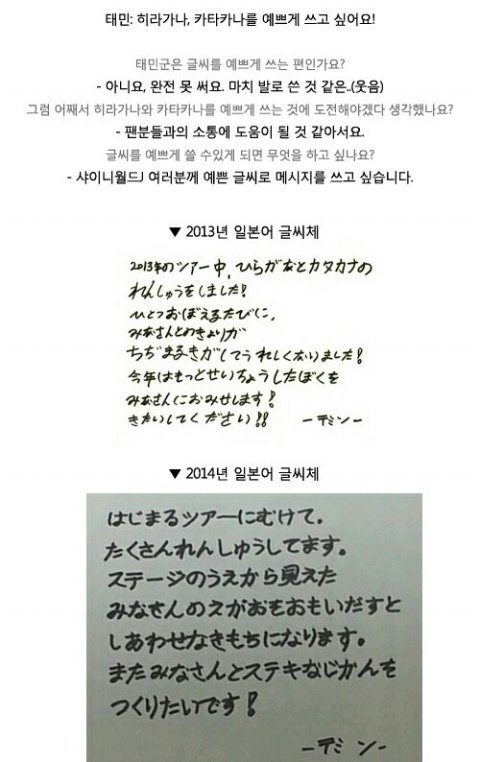 태민: 히라가나, 카타카나를 예쁘게 쓰고 싶어요!
태민군은 글씨를 예쁘게 쓰는 편인가요?
- 아니요, 완전 못 써요. 마치 발로 쓴 것 같은..(웃음)
그럼 어째서 히라가나와 카타카나를 예쁘게 쓰는 것에 도전해야겠다 생각했나요?
- 팬분들과의 소통에 도움이 될 것 같아서요.
글씨를 예쁘게 쓸 수있게 되면 무엇을 하고 싶나요?
- 샤이니월드J 여러분께 예쁜 글씨로 메시지를 쓰고 싶습니다.
▼ 2013년 일본어 글씨체
2013年のツアー中、ひらがなとカタカナの
れんしゅうをしました!
ひとつおぼえるたびに、
みなさんとのきょりが
ちぢまるきがしてうれしくないました!
今年はもっとせいちょうしたぼくを
みなさんにおみせします!
きたいしてください!!
ーテミンー
▼ 2014년 일본어 글씨체
はじまるツアーにむけて。
たくさんれんしゅうしてます。
ステージのうえから見えた
みなさんのえがおをおもいだすと
しあわせなきもちになります。
またみなさんとステキなじかんを
つくりたいです!
ーテミンー